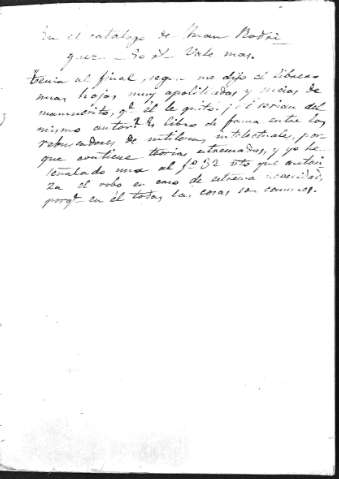 En el catalogo de Juan Rodri
guez - Vale mas.
tenia al final, segun me dijo el librero
unas hojas muy apolilladas y sucias de
manuscrito, q.e el le quito; i serian del
mismo autor. Es libro de fama entre los
rebuscadores de intelectuales, por-
que contiene teorias estremadas, y yo he
señalado una al fº 32 vto que autori
za el robo en caso de estrema necesidad,
porq.e en él todas las cosas son comunes.